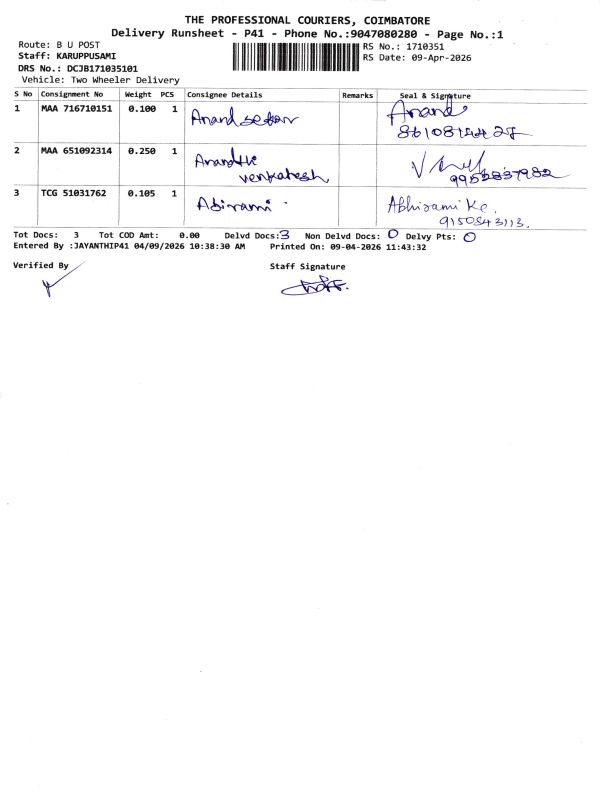 THE PROFESSIONAL COURIERS, COIMBATORE
Delivery Runsheet - P41 - Phone No.:9047080280 - Page No.:1
Route: B U POST
RS No.: 1710351
Staff: KARUPPUSAMI
RS Date: 09-Apr-2026
DRS No.: DCJB171035101
Vehicle: Two Wheeler Delivery
S No Consignment No Weight PCS Consignee Details Remarks Seal & Signature
1 MAA 716710151 0.100 1 Anandsekar Anand
2 MAA 651092314 0.250 1 Anandhi
venkatesh 9952837982
3 TCG 51031762 0.105 1 Abirami Abhirami Ke.
9150843113.
Tot Docs: 3 Tot COD Amt: 0.00 Delvd Docs:3 Non Delvd Docs: 0 Delvy Pts: 0
Entered By :JAYANTHIP41 04/09/2026 10:38:30 AM Printed On: 09-04-2026 11:43:32
Verified By Staff Signature